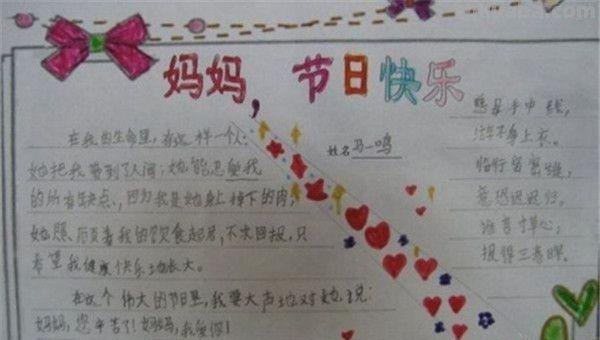 妈妈，节日快乐
姓名 马一鸣
在我的生命里，有这样一个人：
她把我带到了人间；她能忍受我
的所有缺点、，因为我是她身上掉下的肉，
她照顾着我的饮食起居，不求回报，只
希望我健康快乐地长大。
在这个伟大的节日里，我要大声地对她说：
妈妈，您辛苦了！妈妈，我爱你！
慈母手中线，
游子身上衣。
临行密密缝，
意恐迟迟归。
谁言寸草心，
报得三春晖。